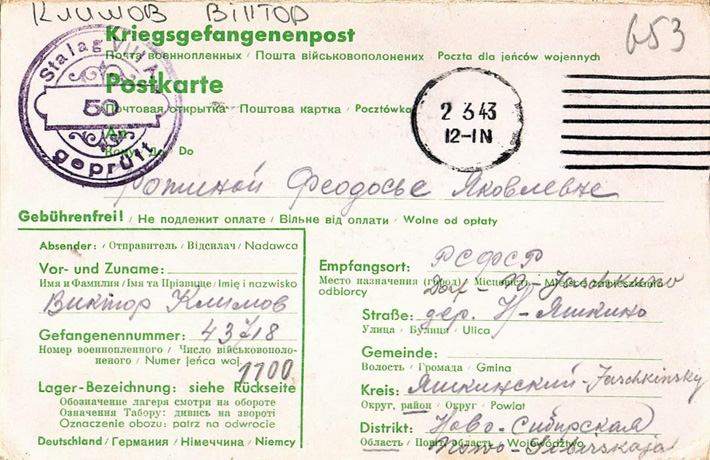 Климов Віптор
653
Kriegsgefangenenpost
Почта военнопленных / Пошта військовополонених / Poczta dla jeńców wojennych
Postkarte
Почтовая открытка / Поштова картка / Pocztówka
Stalag
50
geprüft
2 3 43
12-1N
An
Кому До Do
Феодосье Яковлевне
Gebührenfrei! / Не подлежит оплате / Вільне від оплати / Wolne od opłaty
Absender: / Отправитель / Відсилач / Nadawca
Vor- und Zuname:
Имя и Фамилия / Імя та Прізвище / Imię i nazwisko
Виктор Климов
Gefangenennummer: 43718
Номер военнопленного / Число військовополоненого / Numer jeńca woj.
1700
Lager-Bezeichnung: siehe Rückseite
Обозначение лагеря смотри на обороте
Означення Табору: дивись на звороті
Oznaczenie obozu: patrz na odwrocie
Deutschland / Германия / Німеччина / Niemcy
Empfangsort: РСФСР
Место назначения (город) / Місцевість / Miejsce przeznaczenia
odbiorcy
N-Jaschkino
Straße: дер. Н-Яшкино
Улица / Вулиця / Ulica
Gemeinde:
Волость / Громада / Gmina
Kreis: Яшкинский-Jaschkinsky
Округ, район / Округ / Powiat
Distrikt: Ново-Сибирская
Область / Повіт, область / Województwo
Nowo-Sibirskaja